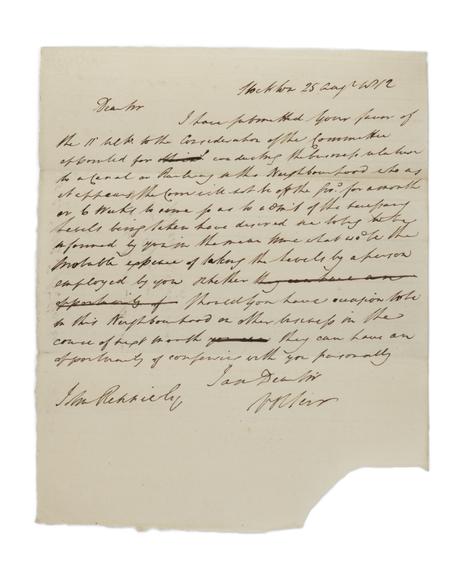 Stockton 25 Augt 1812
Dear Sir
I have submitted your favor of
the 11th to the Consideration of the Committee
appointed for conducting the business relative
to a Canal or Railway in this Neighbourhood who as
it appears the Corn will not be off the for a month
or 6 Weeks to come so as to admit of the necessary
Levels being taken have desired me to beg to be
informed by you in the mean time what wod be the
probable expence of taking the Levels by a person
employed by you whether they can have an
opportunity of should you have occasion to be
in this Neighbourhood on other business in the
course of next month they can have an
opportunity of conference with you personally
I am Dear Sir
John Rennie Esq